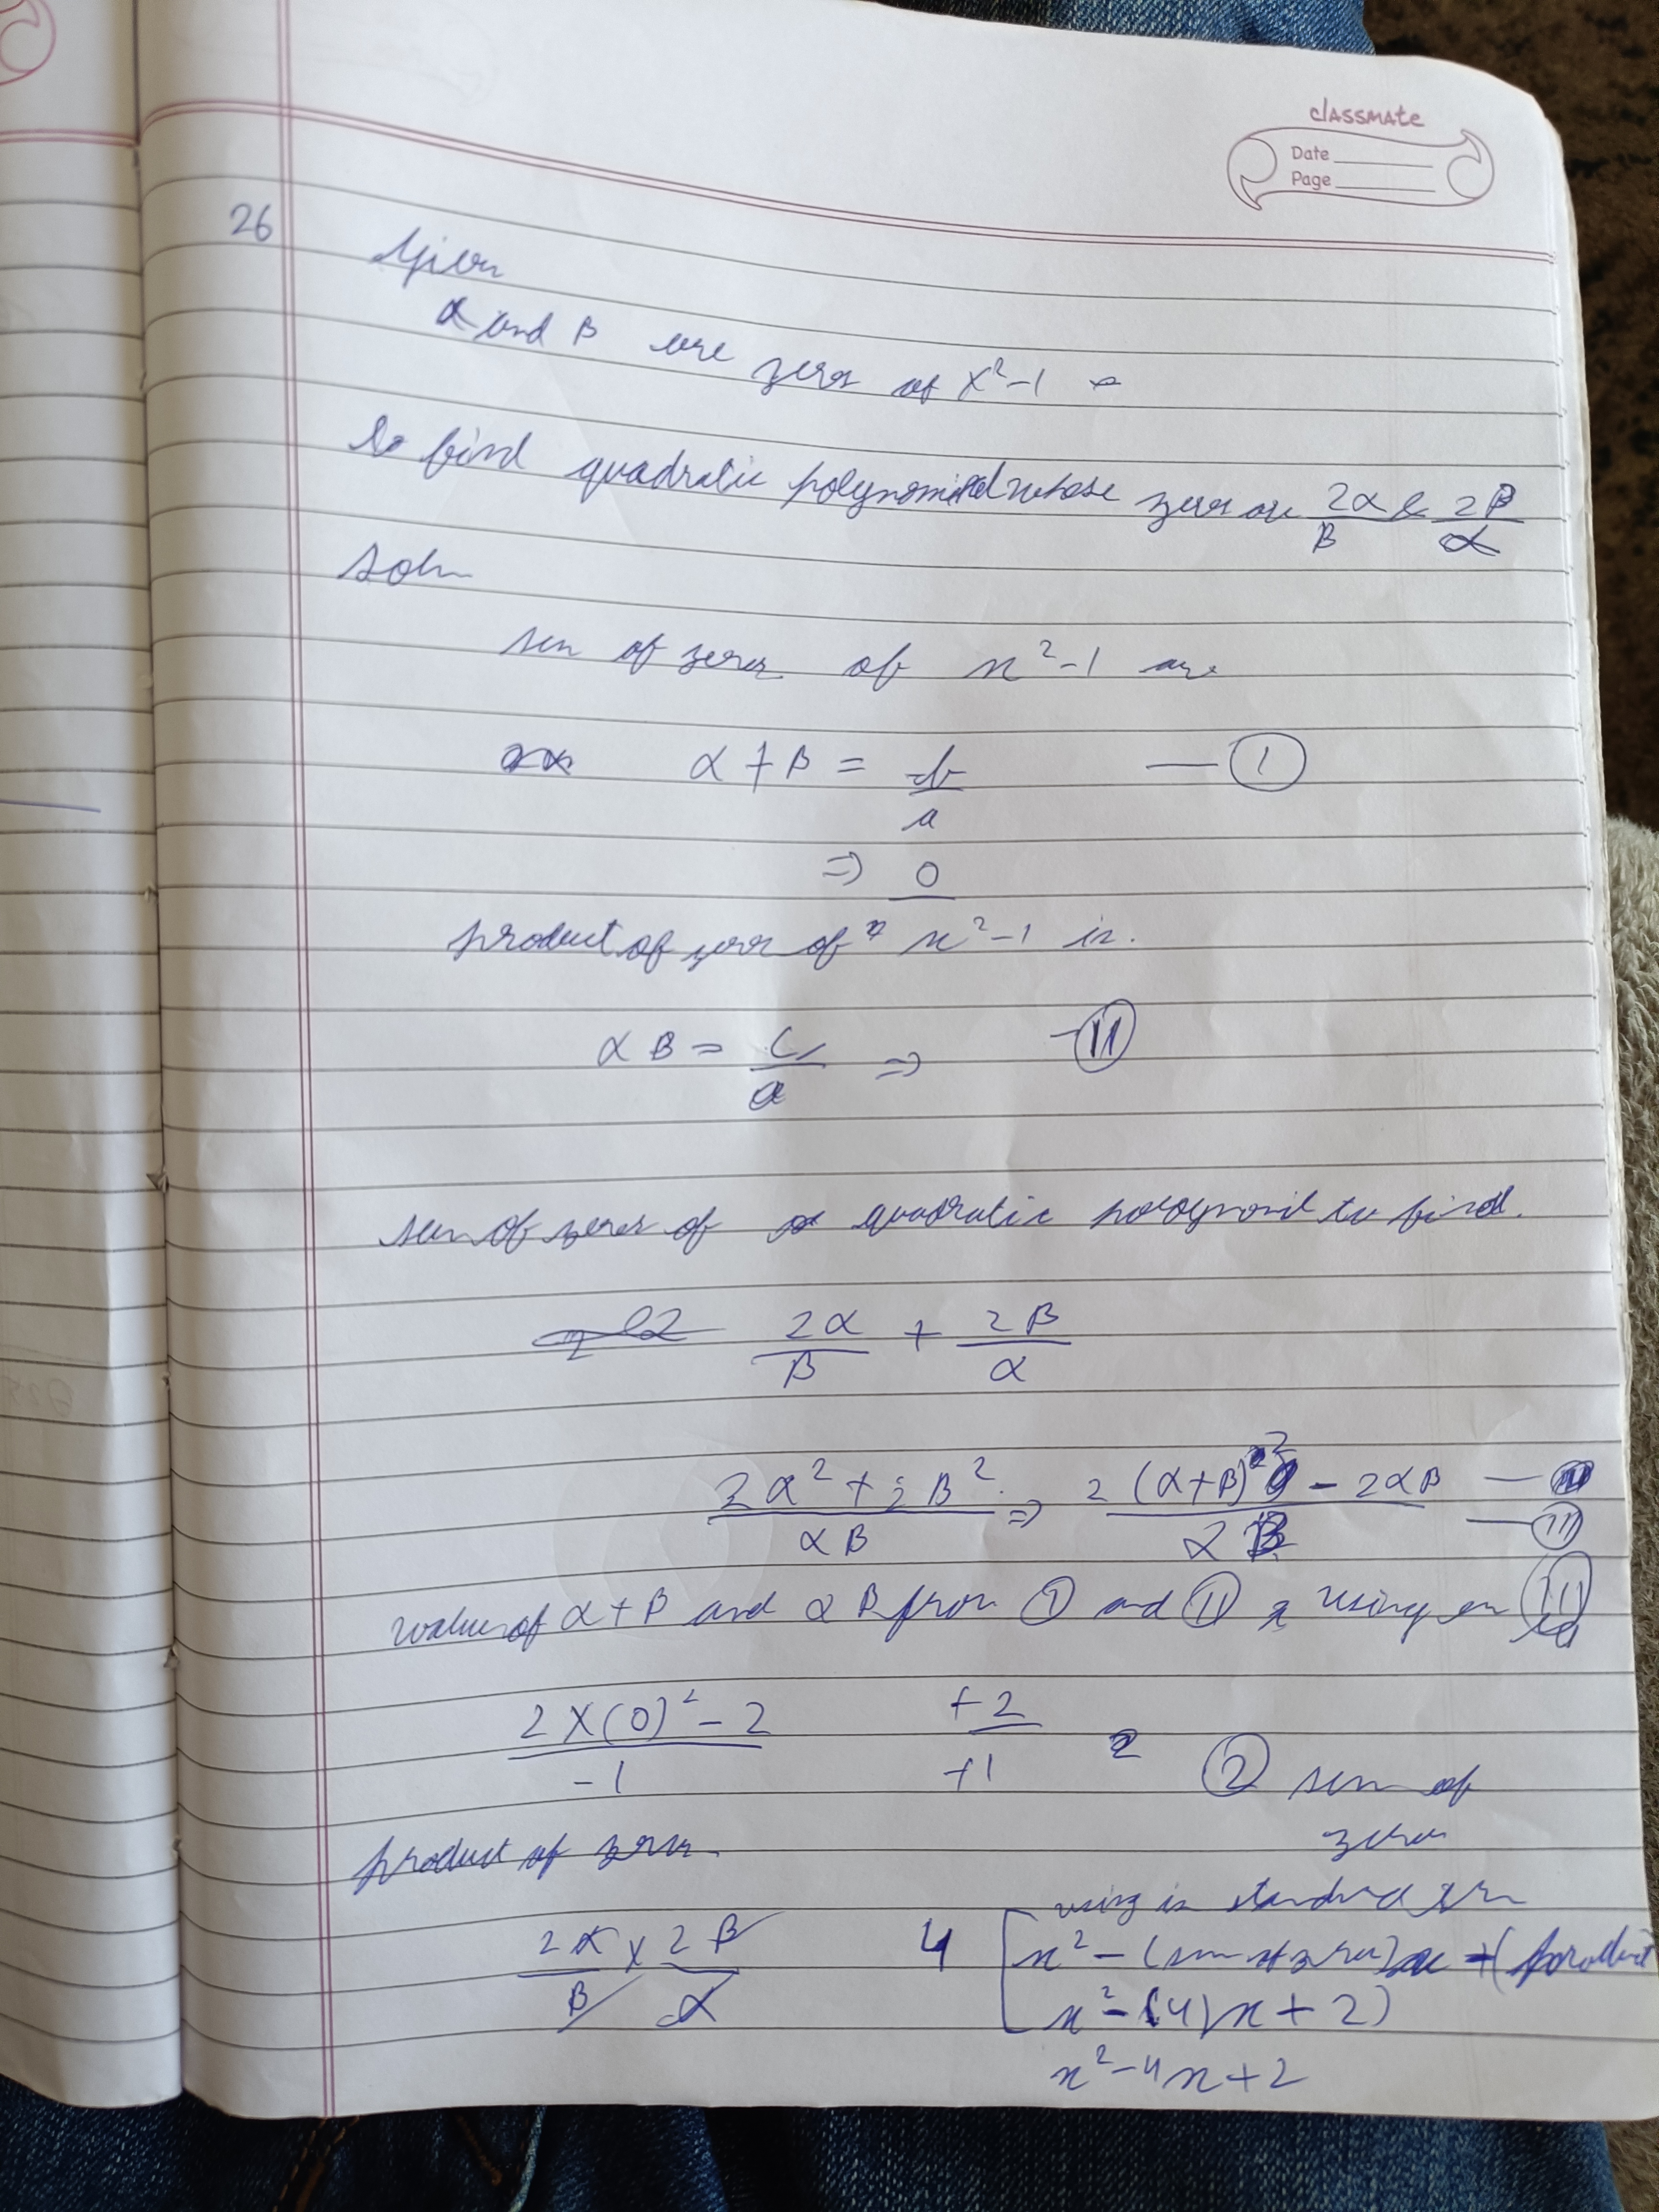 classmate
Date
Page
26
Given
α and β are zeros of x²-1
to find quadratic polynomial whose zeros are 2α/β & 2β/α
Soln
sum of zeros of x²-1 are
α+β = -b/a — (1)
⇒ 0
product of zeros of x²-1 is.
αβ = c/a ⇒ — (11)
sum of zeros of quadratic polynomil to find.
2α/β + 2β/α
2α²+2β²/αβ ⇒ 2(α+β)²-2αβ/αβ — (111)
value of α+β and αβ from (1) and (11) using en (111)
2×(0)²-2/-1 +2/+1 2 (2) sum of
zeros
product of zeros.
2α/β × 2β/α 4
using in standred
x² - (sum of zeros)x + (product
x²-(4)x+2)
x²-4x+2